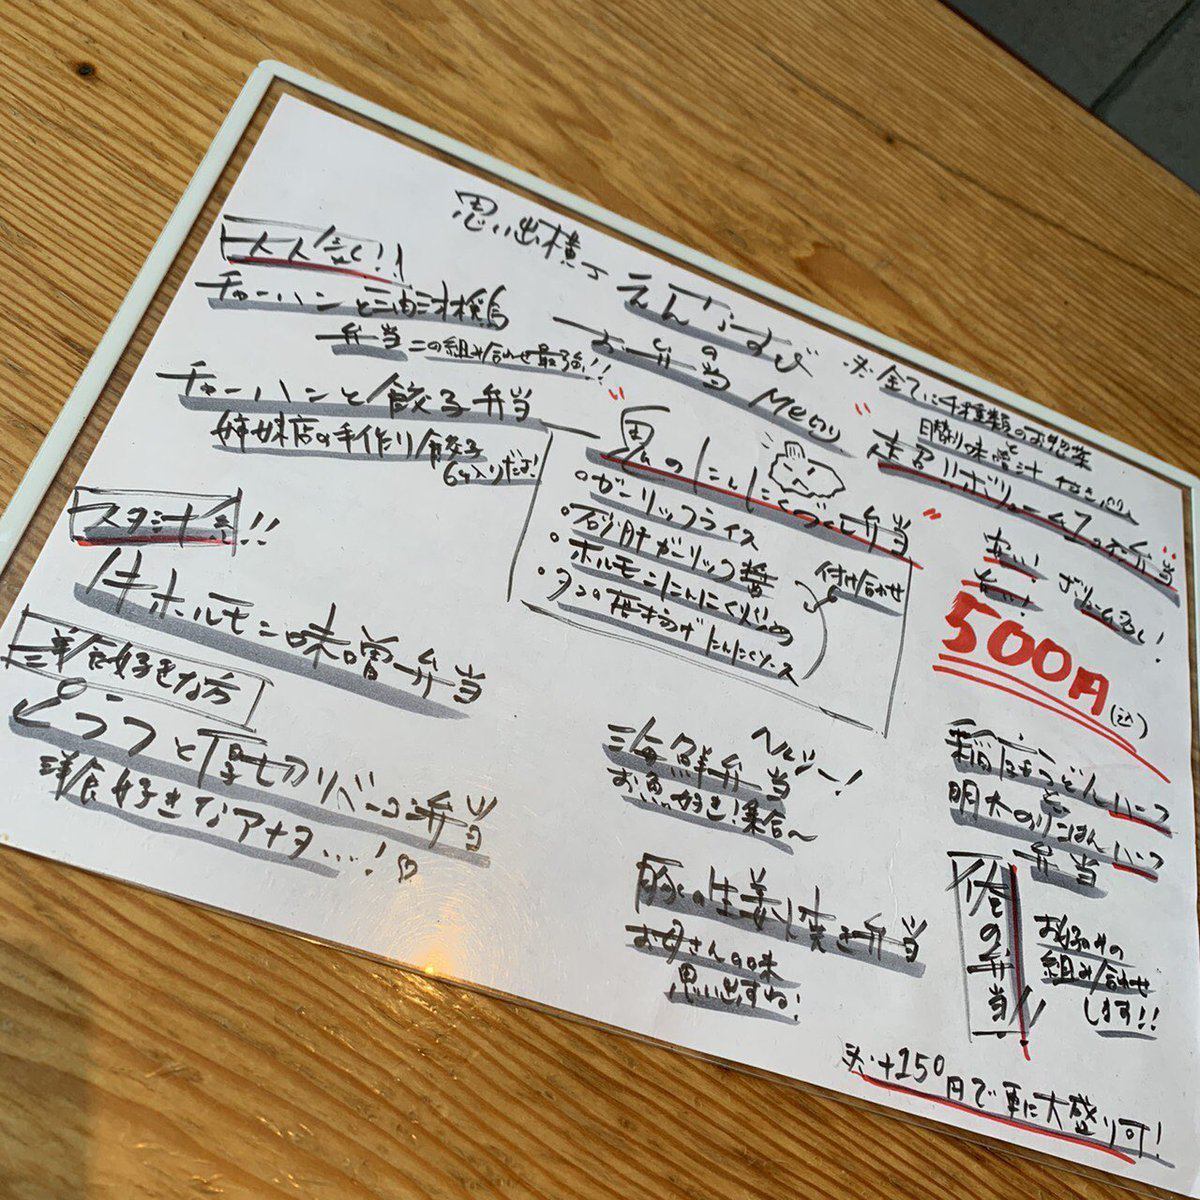 思い出横丁 えんむすび
のお弁当 Menu
※全てに4種類のお惣菜
と
日替り味噌汁 付き
一人気!!
チャーハンと油淋鶏
弁当 この組み合わせ最強!!
チャーハンと餃子弁当
姉妹店の手作り餃子
6ヶ入りだよ!
スタ汁系!!
牛ホルモン味噌弁当
洋食好きな方
ピラフと厚切りベーコン弁当
洋食好きなアナタ…!♡
"鬼のにんにくづくし弁当"
・ガーリックライス
・砂肝ガーリック醤
・ホルモンにんにく炒め
・タンの唐揚げにんにくソース
付け合わせ
ヘルシー!
海鮮弁当
お魚好き!集合〜
豚の生姜焼き弁当
お母さんの味
思い出すね!
"走召!!ボリューム王のお弁当"
安い! ボリューム満点!
500円(込)
と
明太のりごはんハーフ
弁当
俺の弁当!!
お好みの
組み合わせ
します!!
※+150円で更に大盛り可!